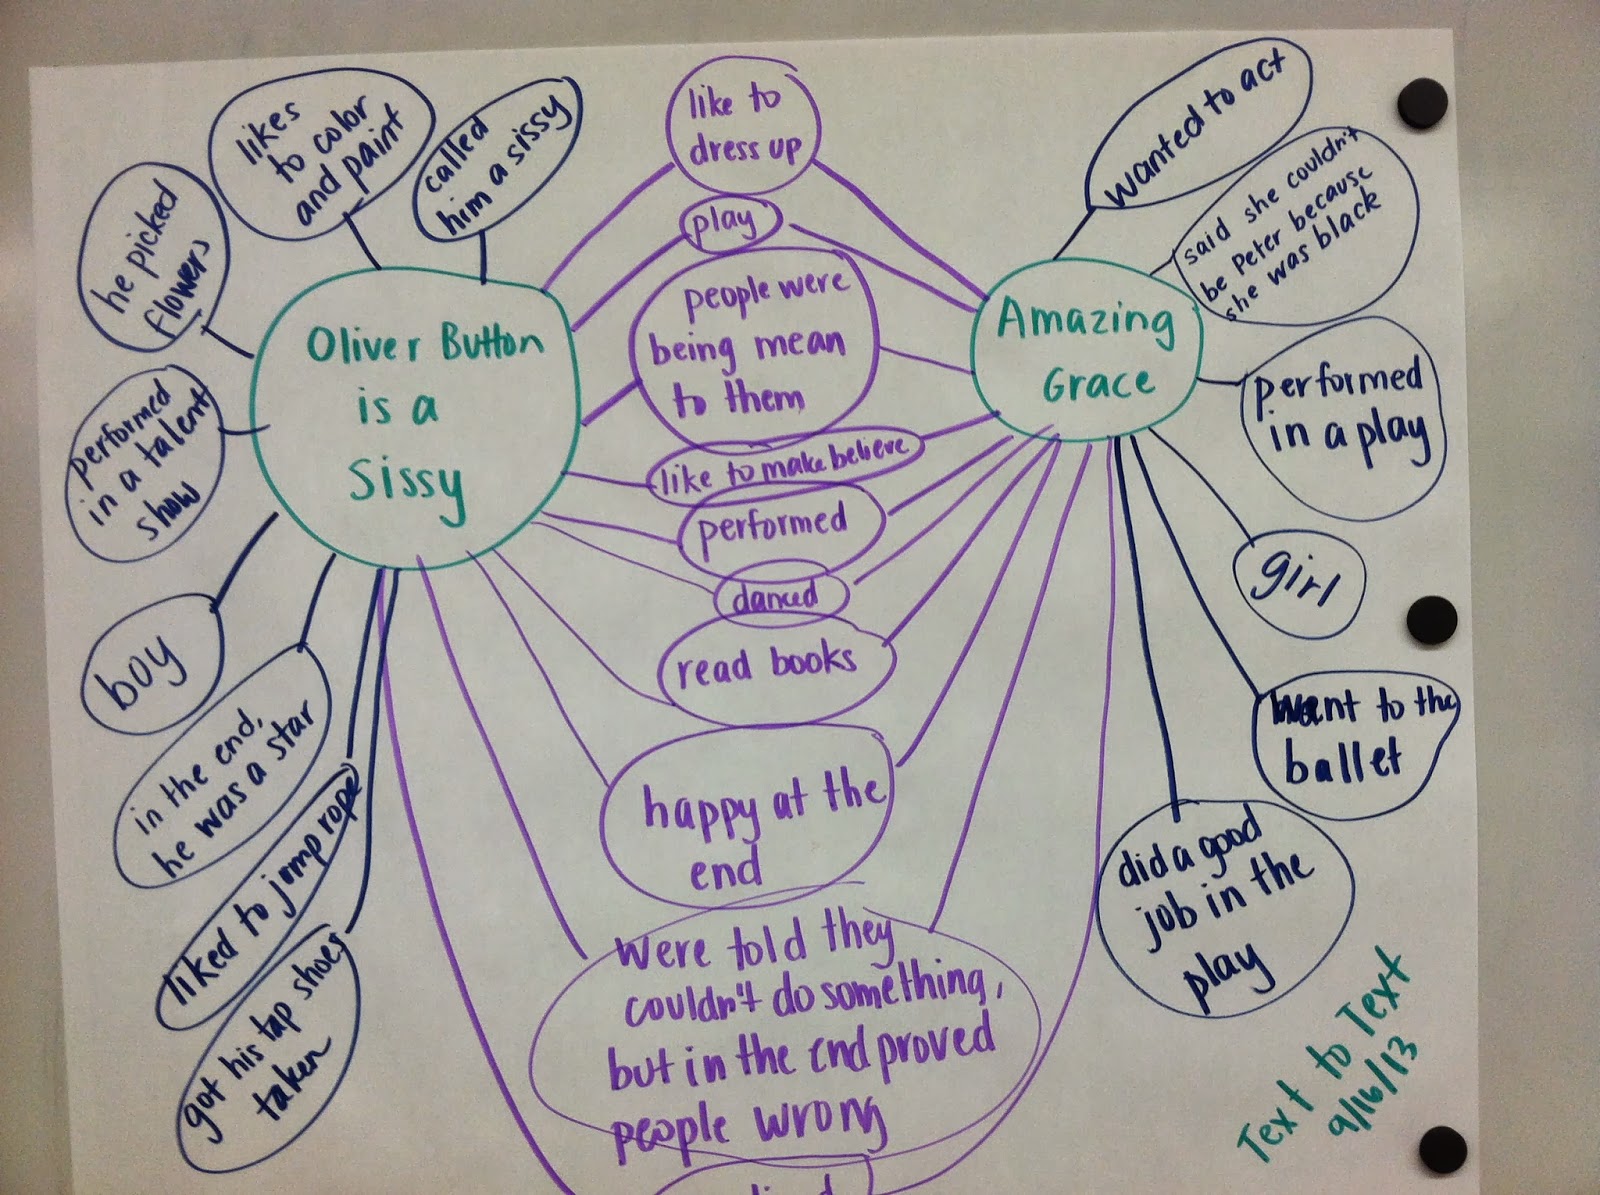 Oliver Button
is a
Sissy
likes
to color
and paint
called
him a sissy
he picked
flowers
performed
in a talent
show
boy
in the end,
he was a star
liked to jump rope
got his tap shoes
taken
like to
dress up
play
people were
being mean
to them
like to make believe
performed
danced
read books
happy at the
end
were told they
couldn't do something,
but in the end proved
people wrong
Amazing
Grace
wanted to act
said she couldn't
be Peter because
she was black
performed
in a play
girl
went to the
ballet
did a good
job in the
play
Text to Text
9/16/13